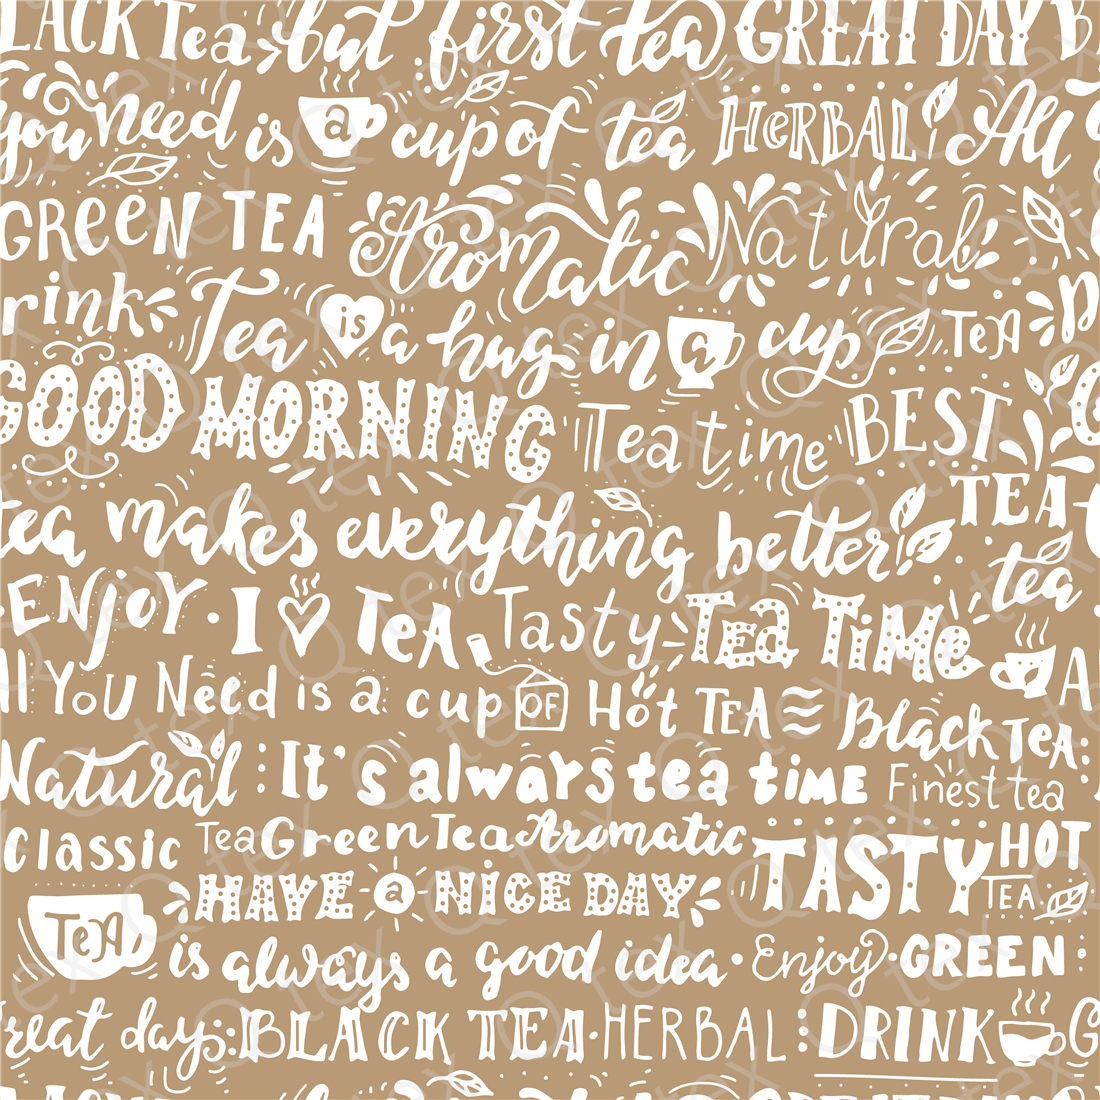 LACK Tea but first tea GREAT DAY B
you need is a cup of tea HeRBAL All
GReeN TEA Aromatic Natural
rink Tea is a hug in a cup TeA
GOOD MORNING Tea time BEST
TEA
tea makes everything better! tea
ENJOY · I TeA Tasty Tea TiMe
ll You Need is a cup OF Hot TEA Black TeA:
Natural : It's always tea time Finest tea
classic Tea Green Tea Aromatic TASTY HOT
TEA
HAVE a NICE DAY
TeA is always a good idea · Enjoy · GREEN :
reat day : BLACK TEA · HERBAL : DRINK G